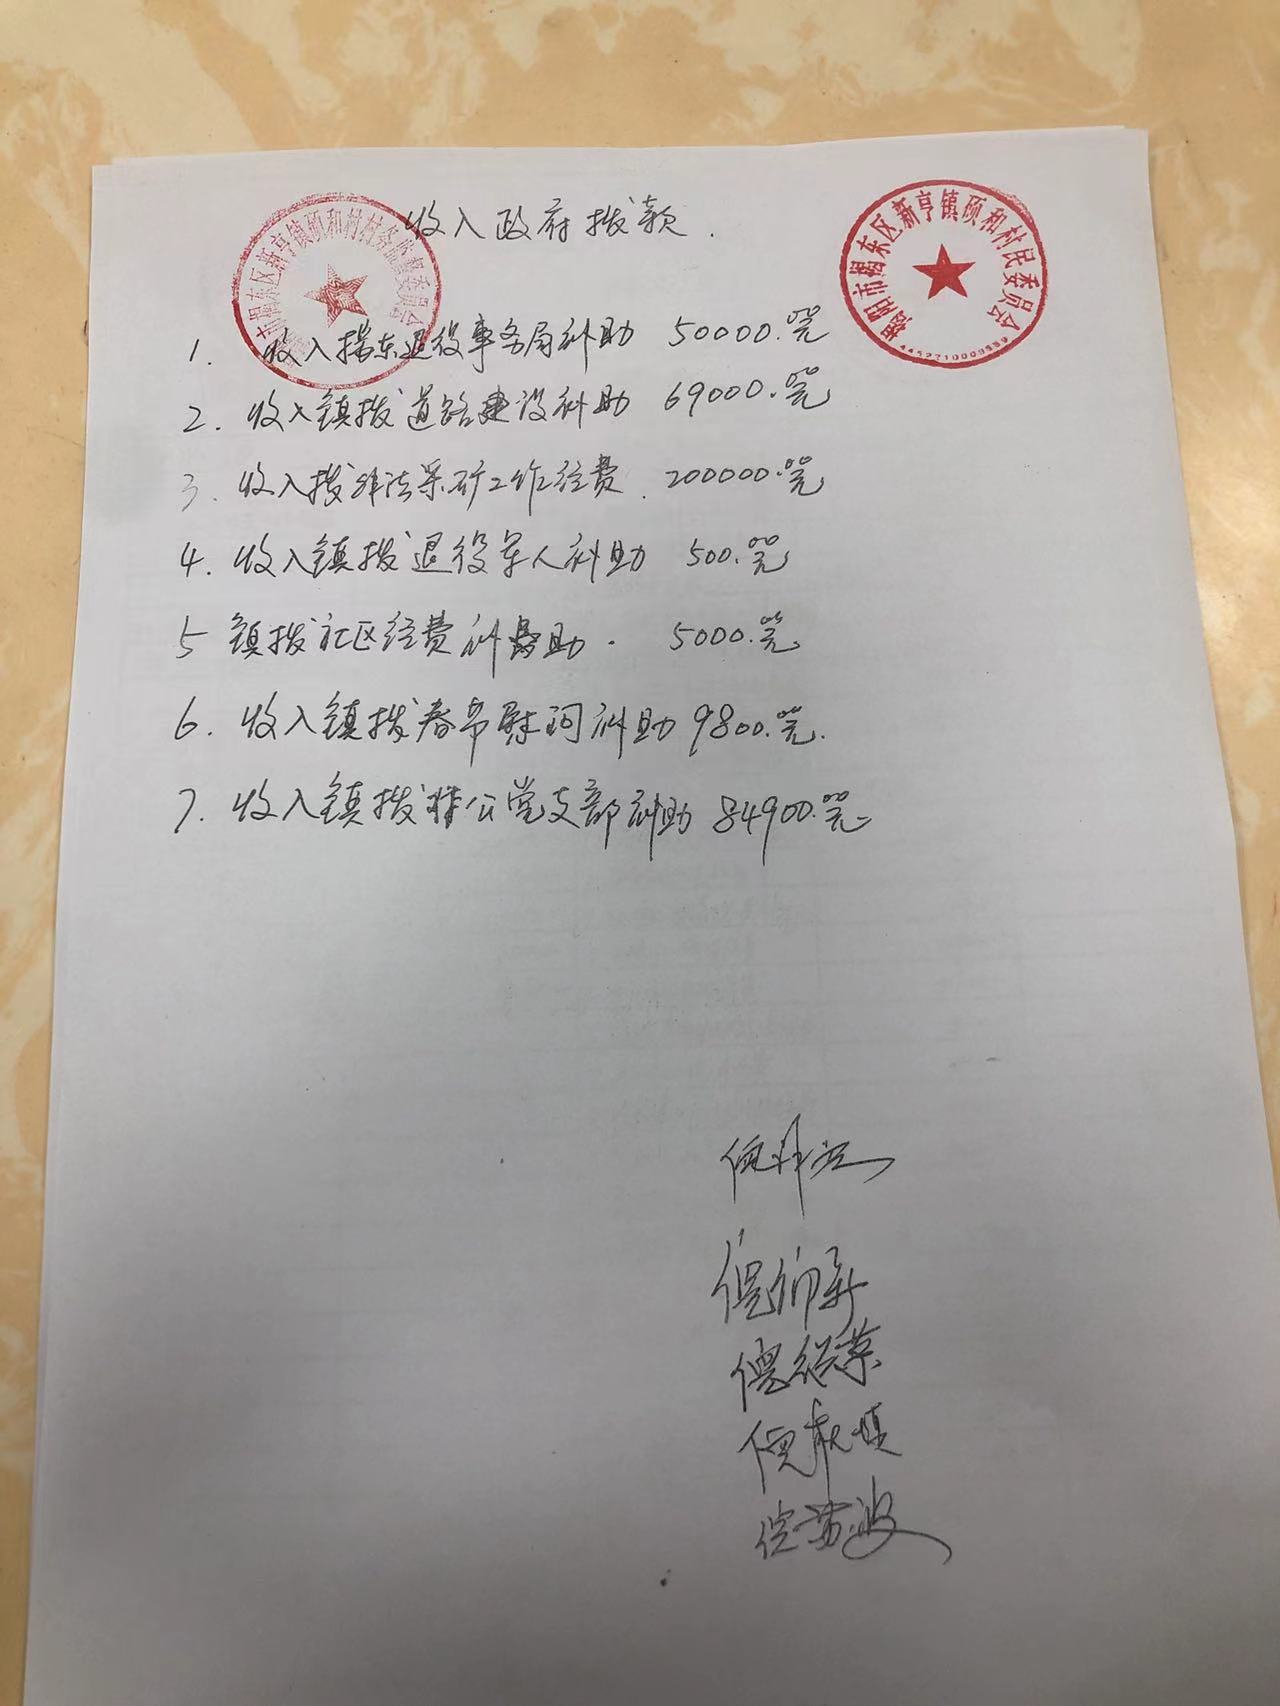 收入政府拨款.
揭东区新亨镇硕和村村务监督委员会
揭阳市揭东区新亨镇硕和村民委员会
1. 收入揭东退役事务局补助 50000.00元
2. 收入镇拨道路建设补助 69000.00元
3. 收入拨非法采矿工作经费. 200000.00元
4. 收入镇拨退役军人补助 500.00元
5 镇拨社区经费补助. 5000.00元
6. 收入镇拨春节慰问补助 9800.00元.
7. 收入镇拨非公党支部补助 84900.00元